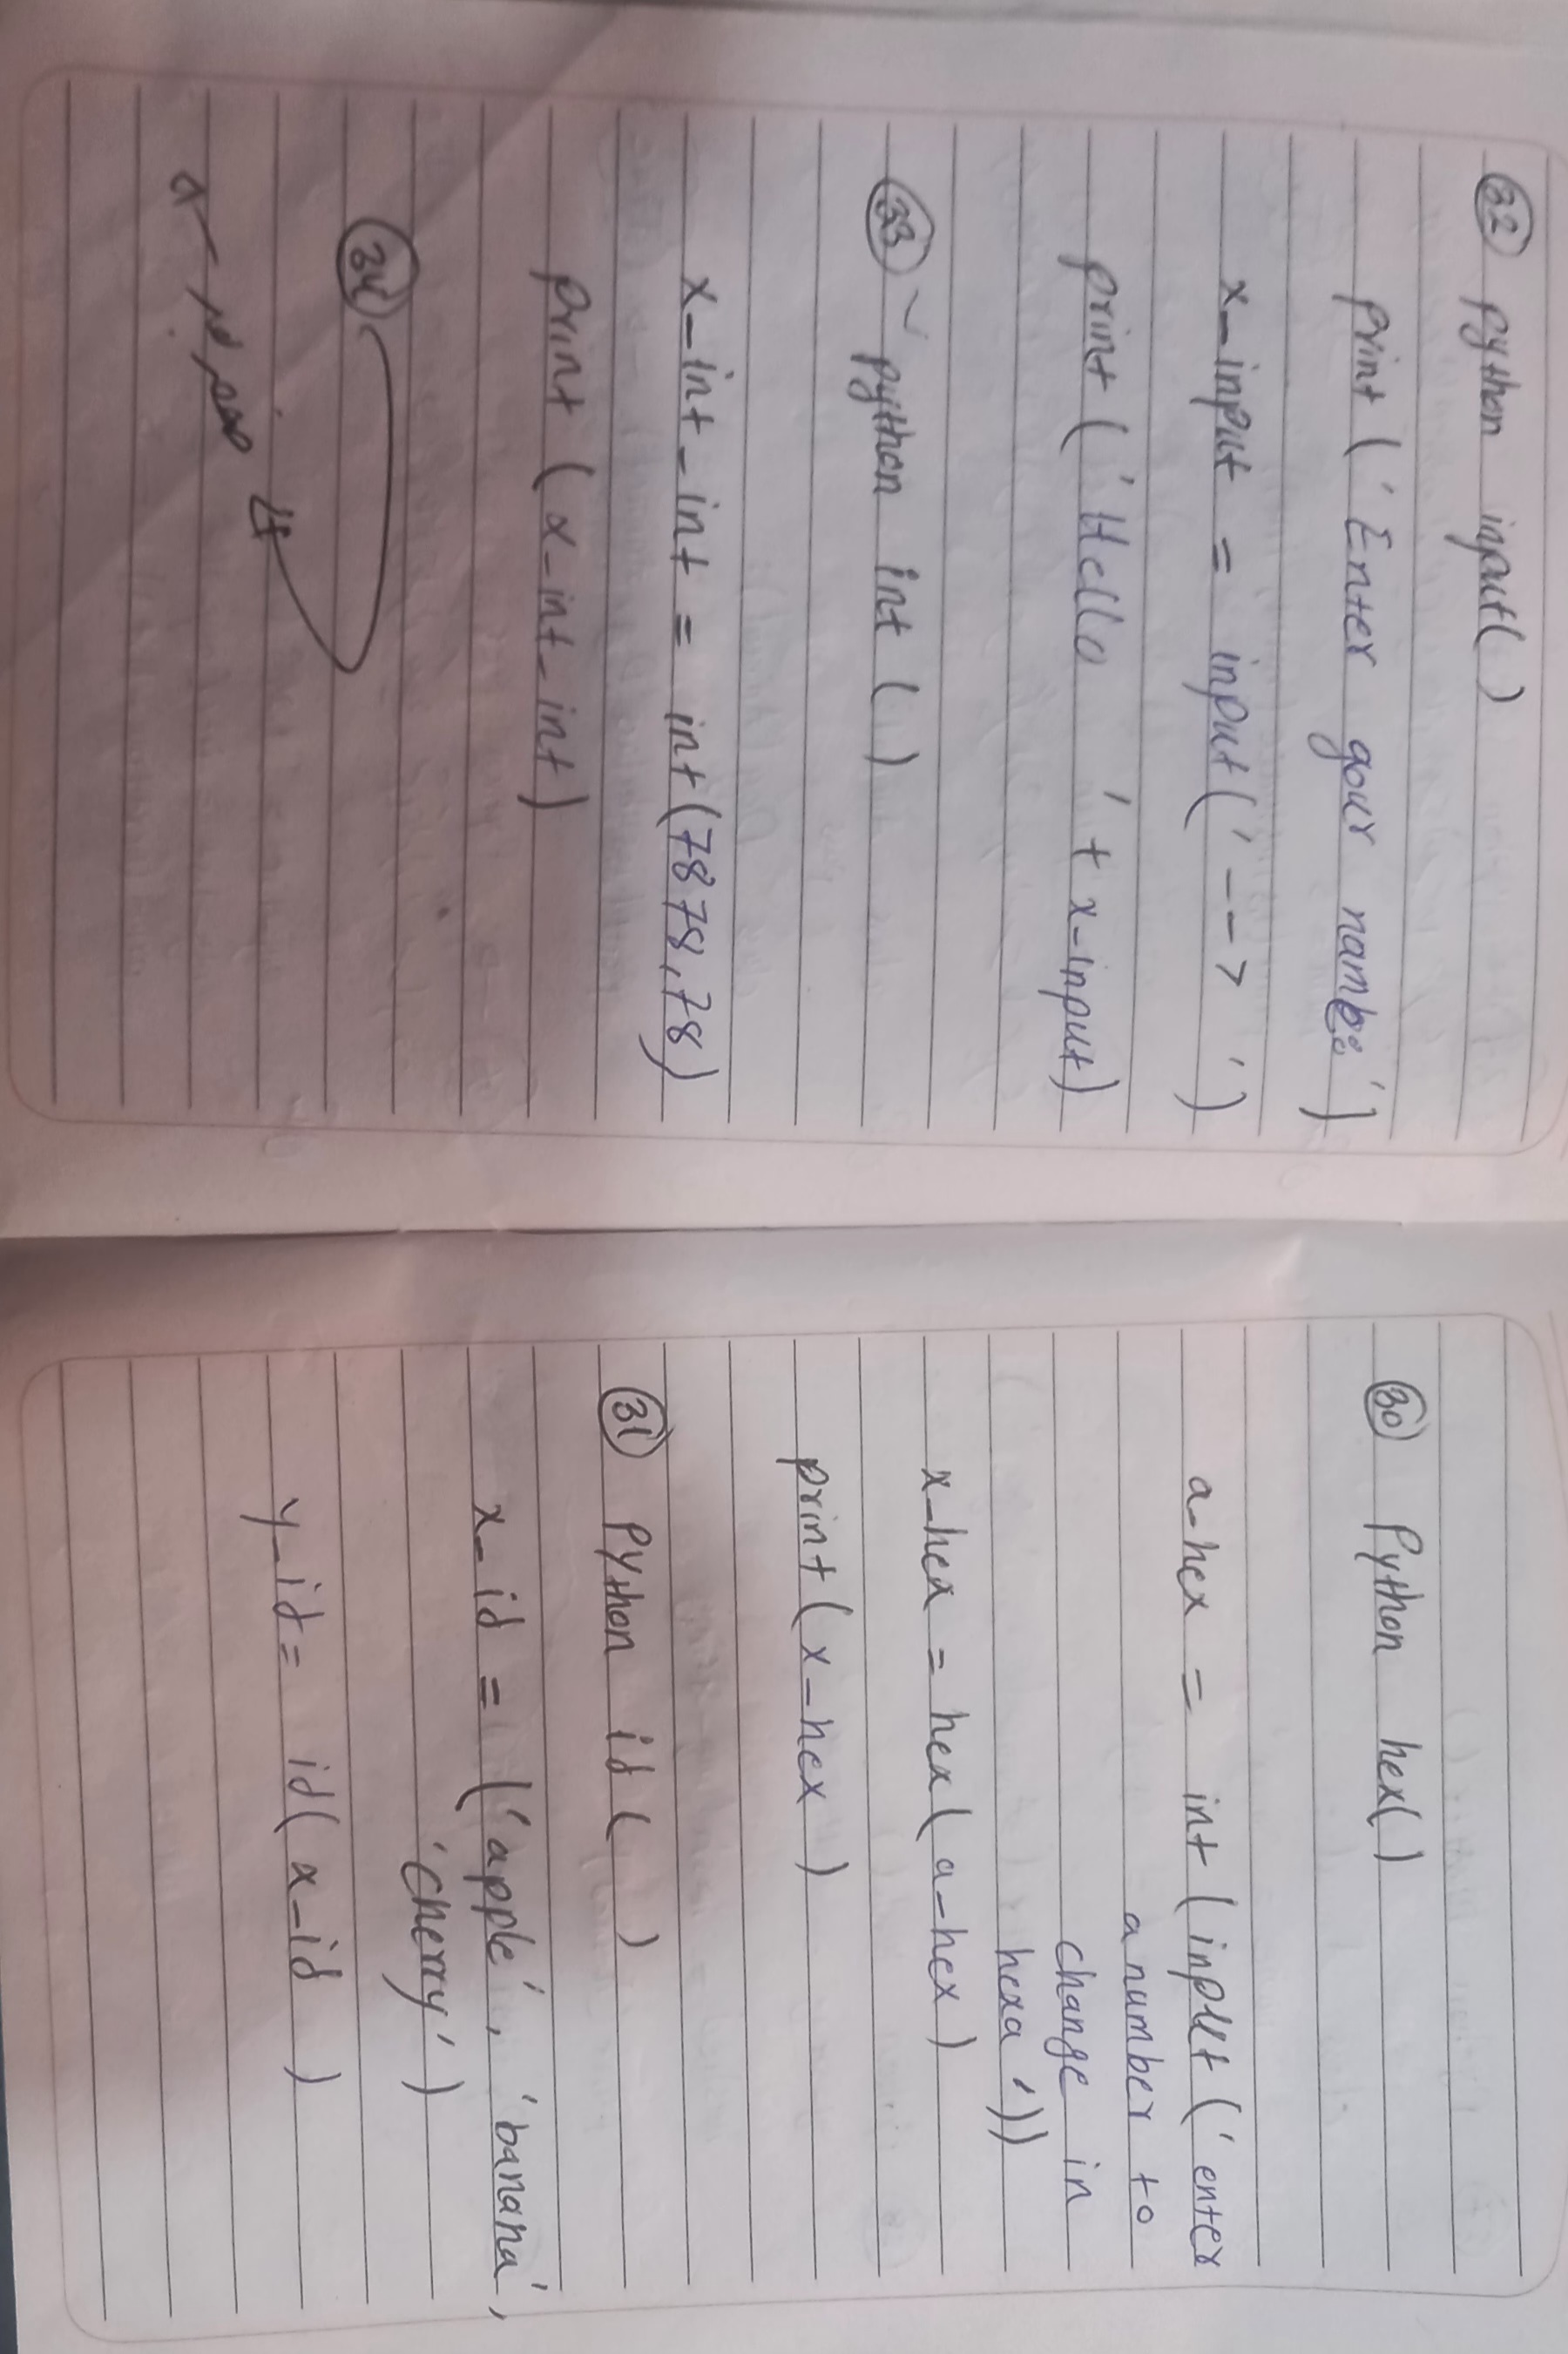 32 python input()
print ('Enter your name:')
x_input = input('--> ')
print ('Hello ' + x_input)
33 python int ( )
x_int_int = int(7878,78)
print (x_int_int)
34
30 Python hex()
a_hex = int (input ('enter
a number to
change in
hexa '))
x_hex = hex(a_hex)
print (x_hex)
31 Python id ( )
x_id = ('apple', 'banana',
'cherry')
y_id = id(x_id)